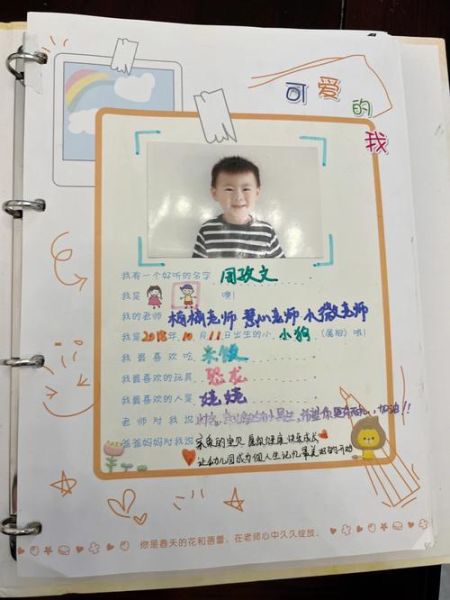 可爱的我
我有一个好听的名字 周孜文
我是 噢!
我的老师 楠楠老师 慧心老师 小微老师
我是2018年10月11日出生的小 小狗 (属相) 哦!
我最喜欢吃 米饭
我最喜欢的玩具 恐龙
我最喜欢的人是 娆娆
老师对我说 希望你更加 ,加油!!
爸爸妈妈对我说 亲爱的宝贝 愿你健康 快乐成长
让幼儿园成为你人生记忆最美好的
你是春天的花和蓓蕾,在老师心中久久绽放。